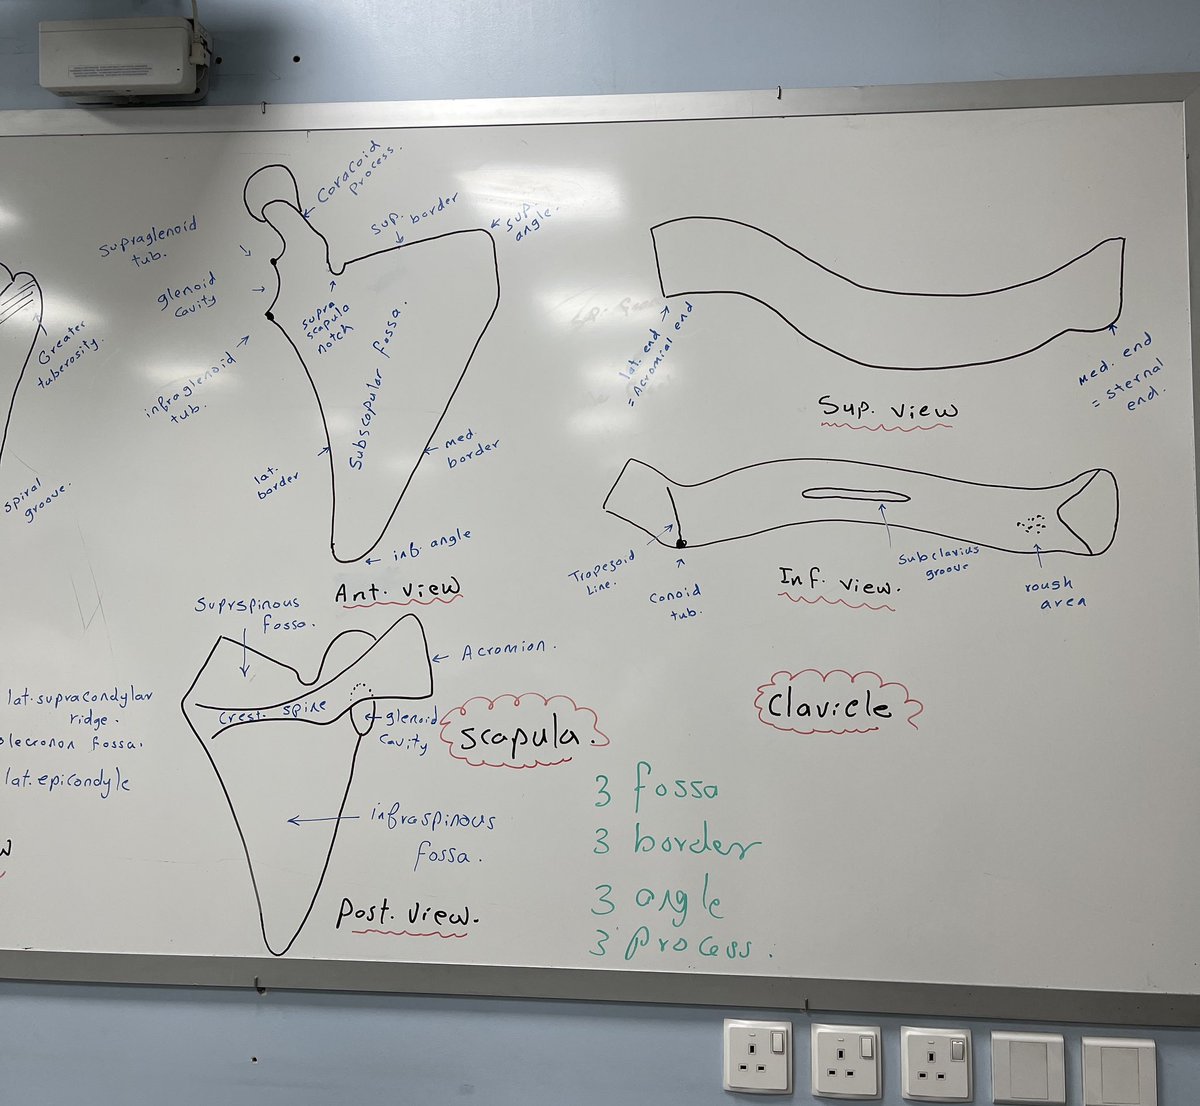 Coracoid
Process.
Sup. border
Sup.
angle.
Supraglenoid
tub.
glenoid
cavity
infraglenoid
tub.
supra
scapula
notch
Subscapular fossa.
lat.
border
med.
border
inf. angle
Ant. view
Greater
tuberosity.
spiral
groove.
lat. end
= Acromial end
Med. end
= sternal
end.
Sup. view
Trapesoid
Line.
Conoid
tub.
Subclavius
groove
rough
area
Inf. view.
Suprspinous
fossa.
Acromion.
Crest. spine
glenoid
cavity
infraspinous
fossa.
Post. view.
lat. supracondylar
ridge.
olecronon fossa.
lat. epicondyle
scapula.
Clavicle
3 fossa
3 border
3 angle
3 process.